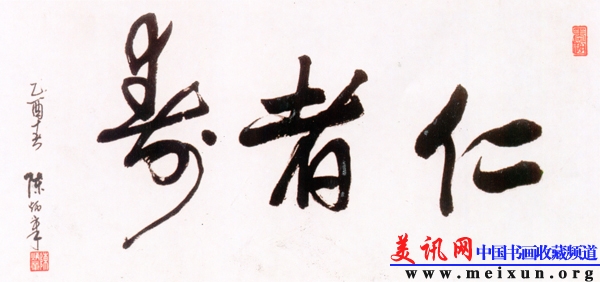 仁者寿
乙酉春 陈炳章
美讯网 中国书画收藏频道
www.meixun.org